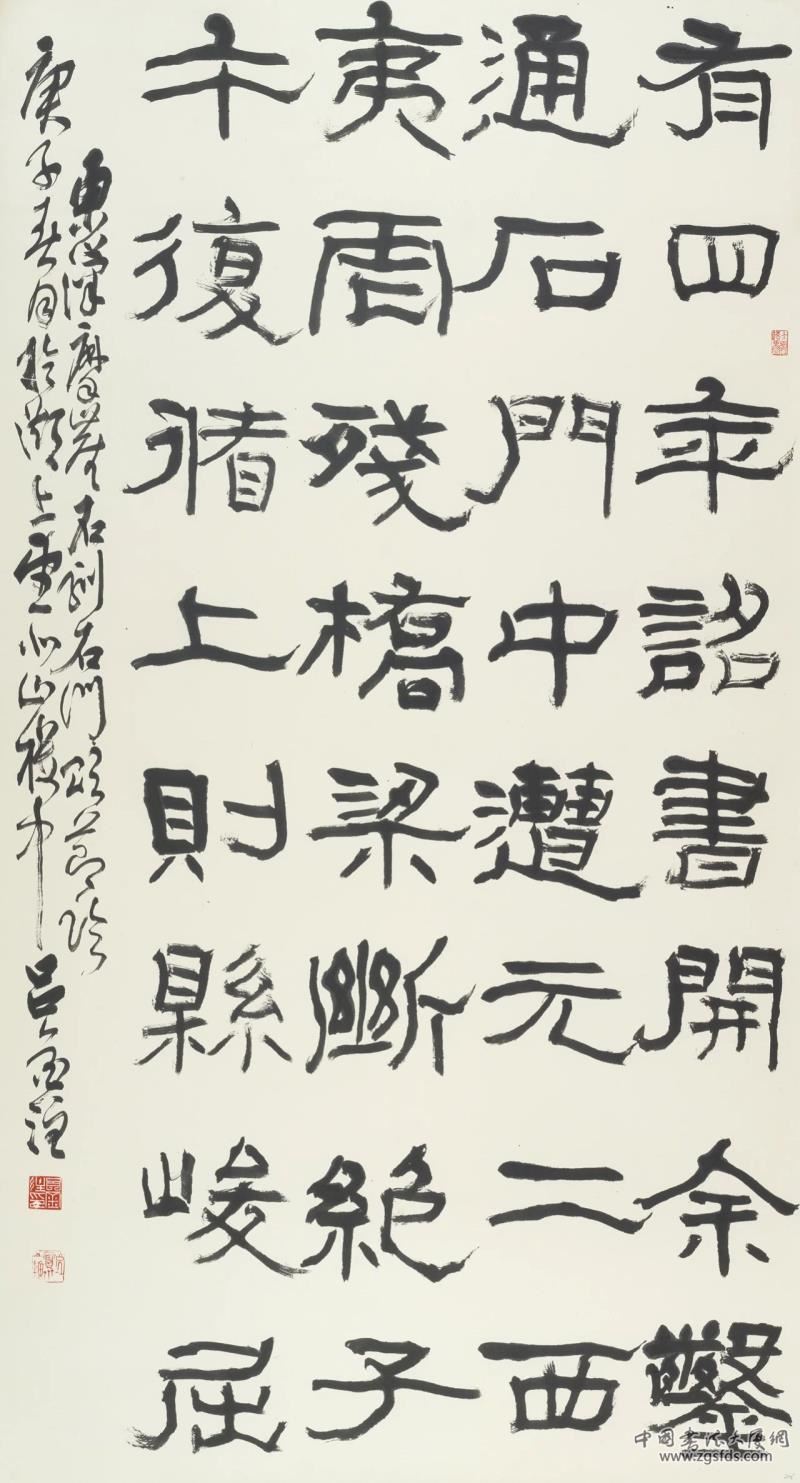 有四年詔書開余鑿
通石門中遭元二西
夷虐殘橋梁斷絕子
午復循上則縣峻屈
東漢摩崖石刻石門頌節臨
庚子春月於上山樓中呂
中國書法大廈網
www.zgsfds.com